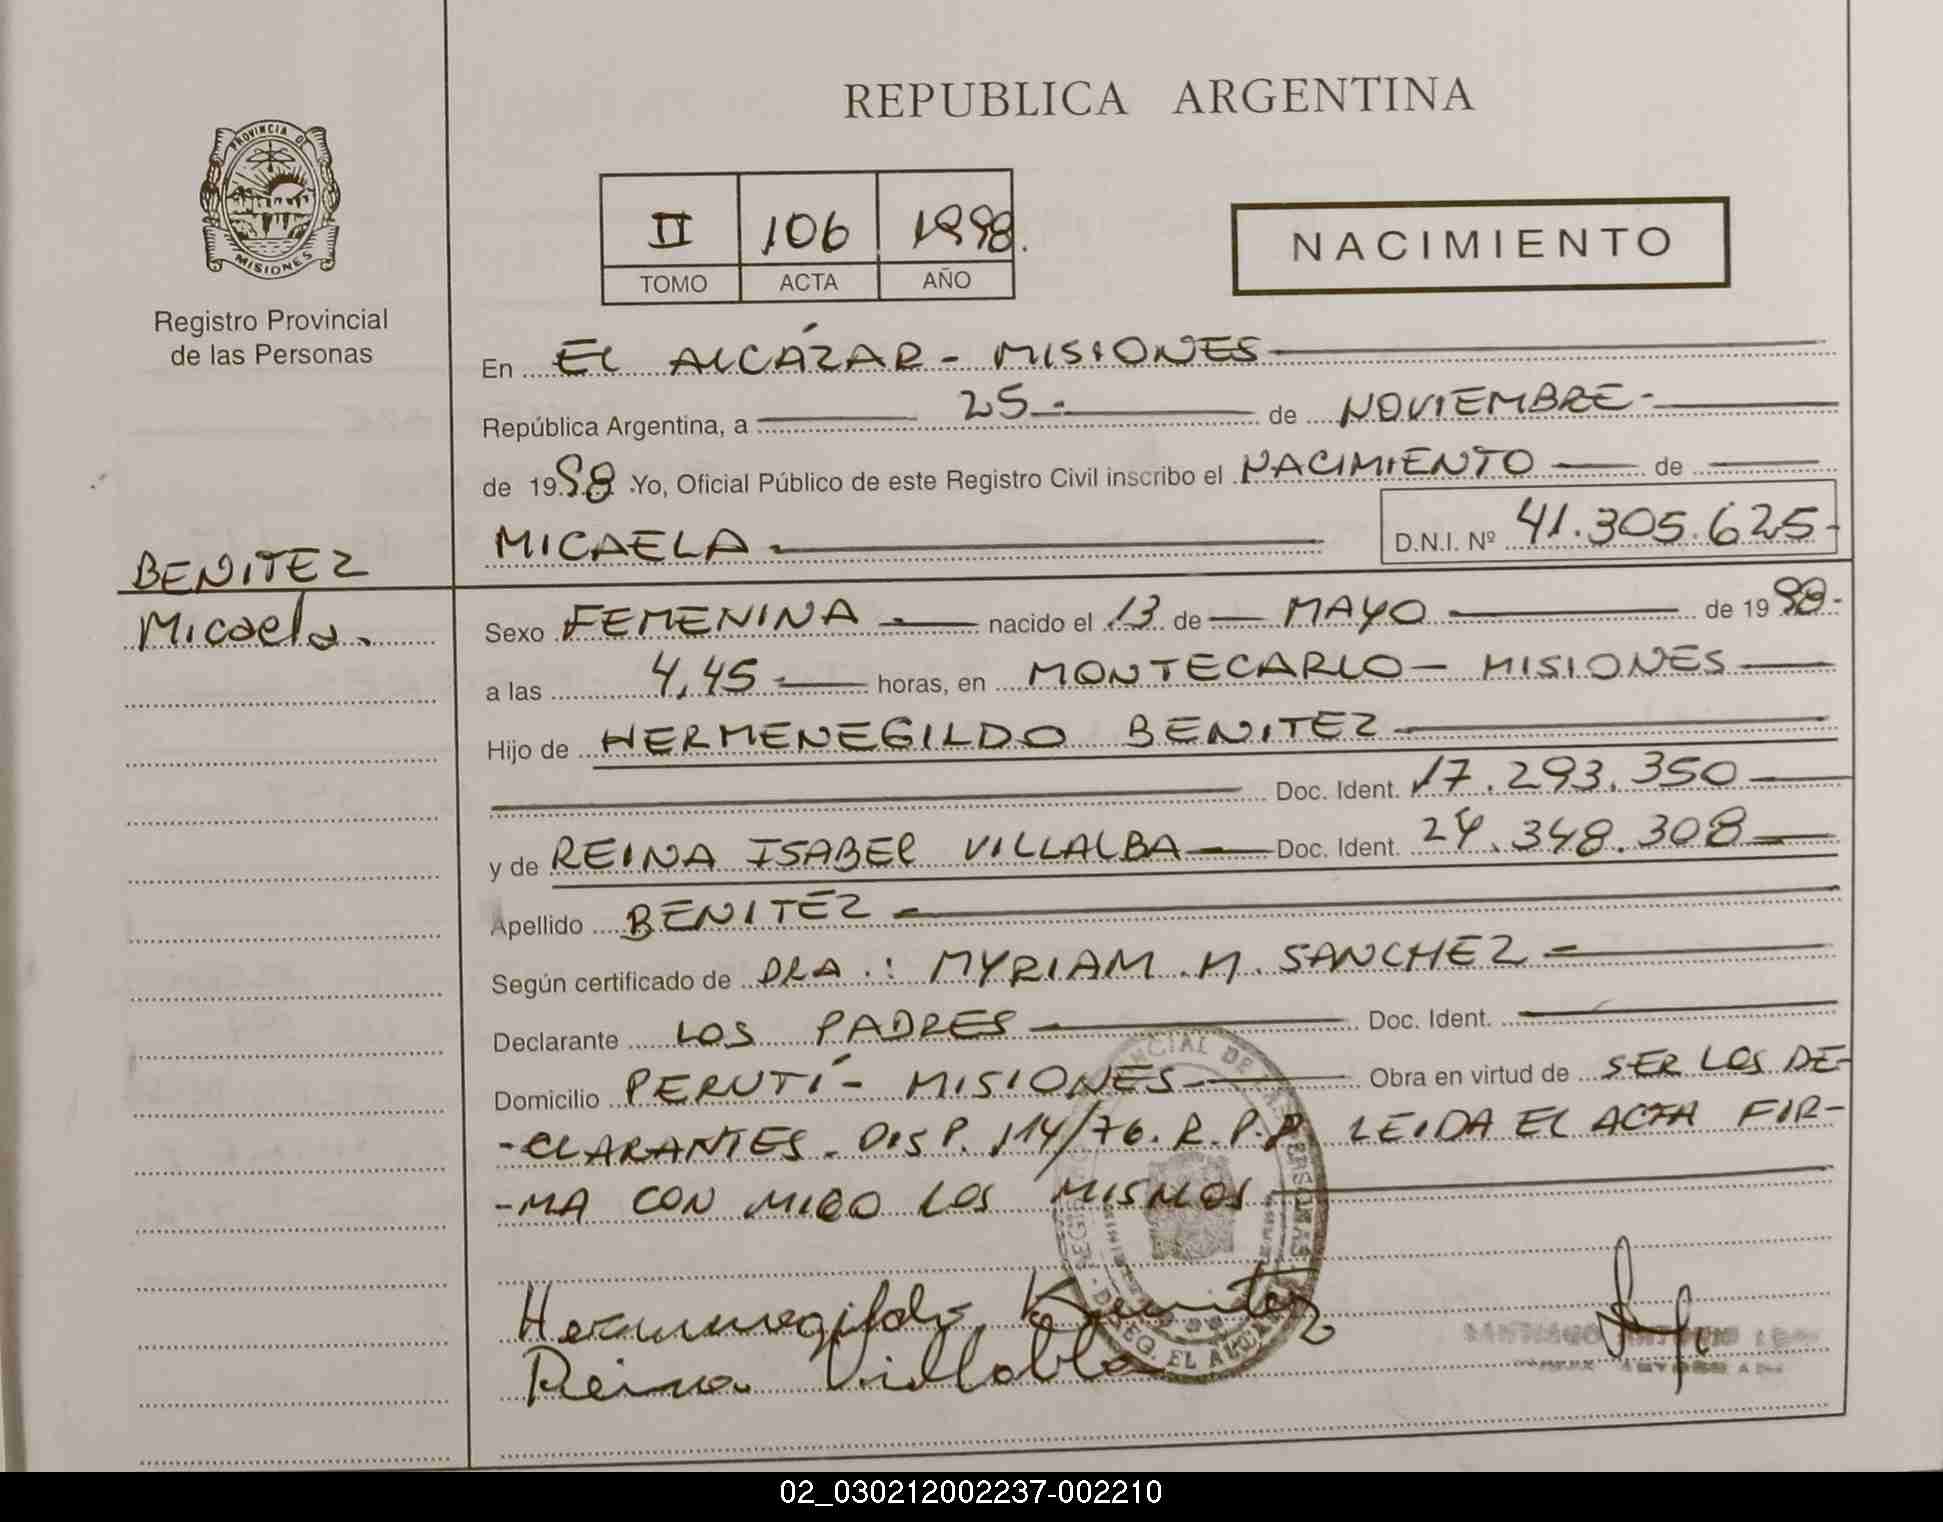 REPUBLICA ARGENTINA
PROVINCIA D
MISIONES
Registro Provincial
de las Personas
II 106 1998.
TOMO ACTA AÑO
NACIMIENTO
En EL ALCÁZAR - MISIONES
República Argentina, a 25 - de NOVIEMBRE -
de 1998 Yo, Oficial Público de este Registro Civil inscribo el NACIMIENTO de
MICAELA D.N.I. Nº 41.305.625-
BENITEZ
Micaela.
Sexo FEMENINA nacido el 13 de MAYO de 1998-
a las 4,45 horas, en MONTECARLO - MISIONES
Hijo de HERMENEGILDO BENITEZ
Doc. Ident. 17.293.350
y de REINA ISABEL VILLALBA Doc. Ident. 24.348.308
Apellido BENITEZ
Según certificado de DRA.: MYRIAM M. SANCHEZ
Declarante LOS PADRES Doc. Ident.
Domicilio PERUTÍ - MISIONES Obra en virtud de SER LOS DE-
-CLARANTES. DISP. 114/76. R.P.P. LEIDA EL ACTA FIR-
-MA CON MIGO LOS MISMOS
Hermenegildo Benitez
Reina Villalba
SANTIAGO
02_030212002237-002210